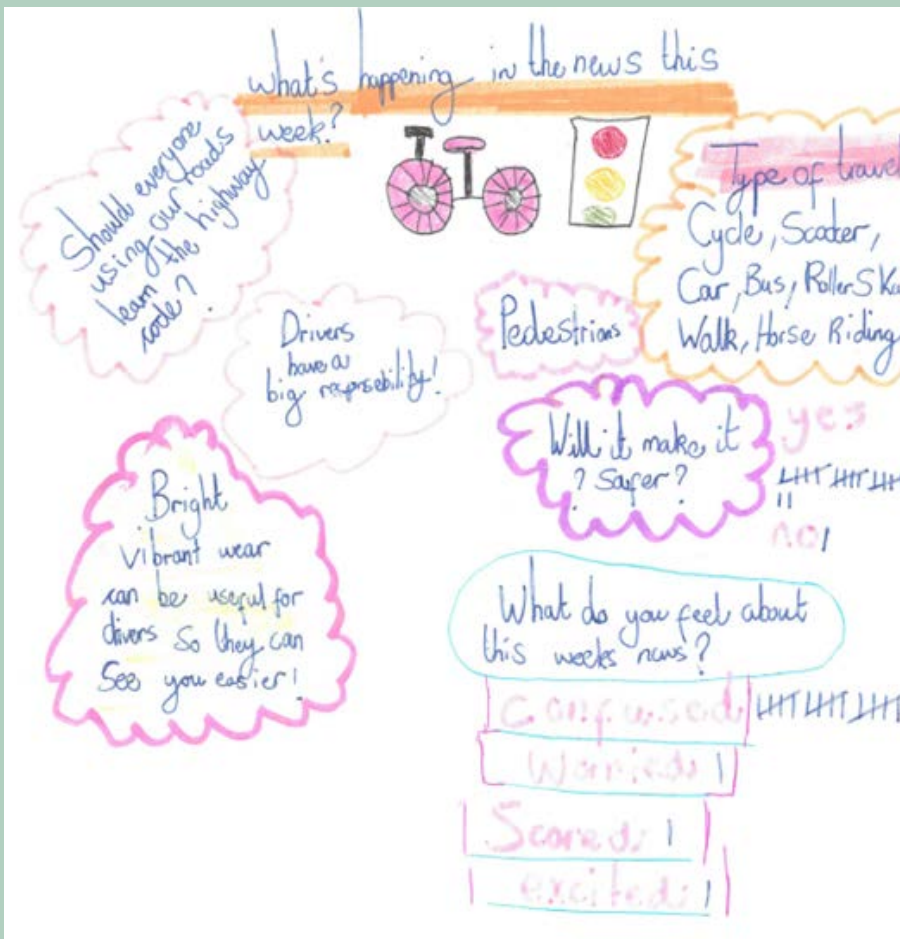 What's happening in the news this
week?
Should everyone
using our roads
learn the highway
code?
Type of travel
Cycle, Scooter,
Car, Bus, Roller Ska
Walk, Horse Riding
Drivers
have a
big responsebility!
Pedestrians
Will it make it
? Safer?
yes
no
Bright
vibrant wear
can be useful for
drivers so they can
See you easier!
What do you feel about
this weeks news?
Confused
Worried:
Scared:
excited: